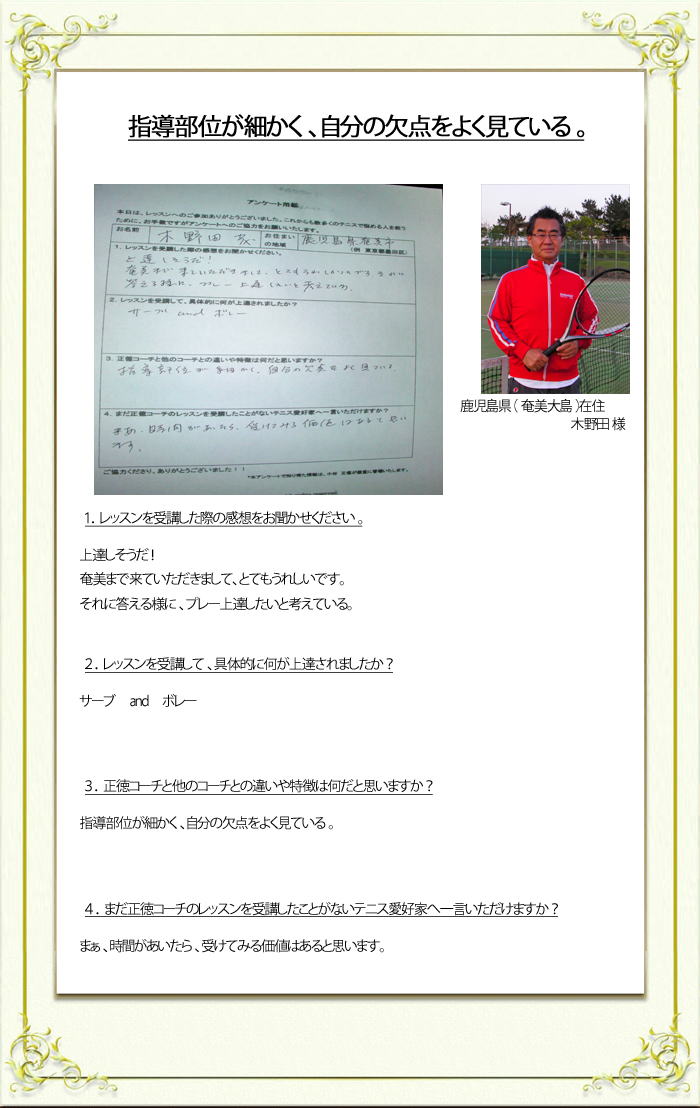 指導部位が細かく、自分の欠点をよく見ている。
アンケート用紙
本日は、レッスンへのご参加ありがとうございました。これからも数多くのテニスで悩める人を救う
ために、お手数ですがアンケートへのご協力をお願いいたします。
お名前 木野田 お住まいの地域 鹿児島県奄美市
（例 東京都墨田区）
1. レッスンを受講した際の感想をお聞かせください。
上達しそうだ！
奄美まで来ていただきまして、とてもうれしいです。それに
答える様に、プレー上達したいと考えている。
2. レッスンを受講して、具体的に何が上達されましたか？
サーブ and ボレー
3. 正徳コーチと他のコーチとの違いや特徴は何だと思いますか？
指導部位が細かく、自分の欠点をよく見ている。
4. まだ正徳コーチのレッスンを受講したことがないテニス愛好家へ一言いただけますか？
まあ、時間があいたら、受けてみる価値はあると思い
ます。
ご協力くださり、ありがとうございました！！
鹿児島県（奄美大島）在住
木野田 様
1. レッスンを受講した際の感想をお聞かせください。
上達しそうだ！
奄美まで来ていただきまして、とてもうれしいです。
それに答える様に、プレー上達したいと考えている。
２．レッスンを受講して、具体的に何が上達されましたか？
サーブ　and　ボレー
３．正徳コーチと他のコーチとの違いや特徴は何だと思いますか？
指導部位が細かく、自分の欠点をよく見ている。
４．まだ正徳コーチのレッスンを受講したことがないテニス愛好家へ一言いただけますか？
まぁ、時間があいたら、受けてみる価値はあると思います。